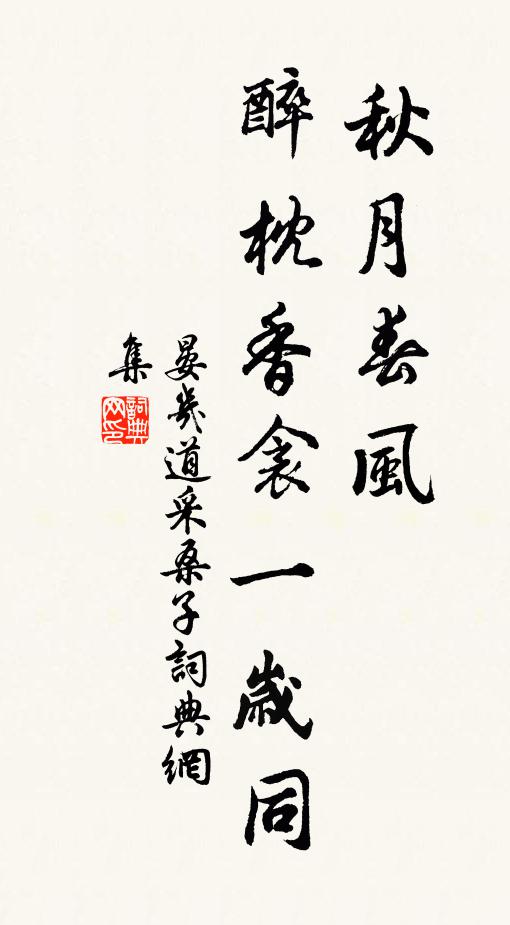 秋月春風
醉枕香衾一歲同
晏幾道采桑子詞典網
集
詞典
网印